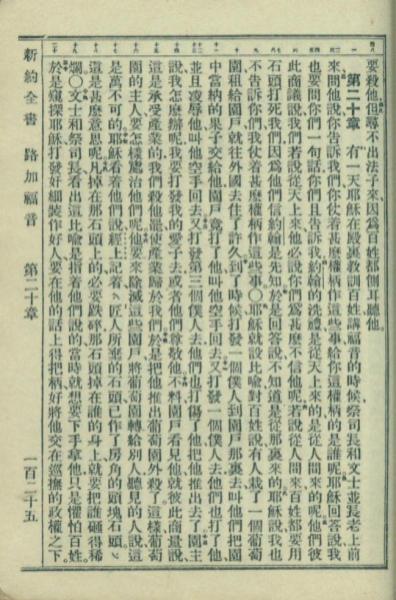 要殺他但尋不出法子來因爲百姓都側耳聽他
第二十章 有一天耶穌在殿裏教訓百姓講福音的時候祭司長和文士並長老上前
來問他說你告訴我們你仗着甚麼權柄作這些事給你這權柄的是誰呢耶穌回答說我
也要問你們一句話你們且告訴我約翰的洗禮是從天上來的是從人間來的呢他們彼
此商議說我們若說從天上來他必說你們爲甚麼不信他呢若說從人間來百姓都要用
石頭打死我們因爲他們信約翰是先知於是回答說不知道是從那裏來的耶穌說我也
不告訴你們我仗着甚麼權柄作這些事〇耶穌就設比喻對百姓說有人栽了一個葡萄
園租給園戶就往外國去住了許久到了時候打發一個僕人到園戶那裏去叫他們把園
中當納的果子交給他園戶竟打了他叫他空手回去又打發一個僕人去他們也打了他
並且凌辱他叫他空手回去又打發第三個僕人去他們也打傷了他把他推出去了園主
說我怎麼辦呢我要打發我的愛子去或者他們尊敬他不料園戶看見他就彼此商量說
這是承受產業的我們殺他罷使產業歸於我們於是把他推出葡萄園外殺了這樣葡萄
園的主人要怎樣處治他們呢他要來除滅這些園戶將葡萄園轉給別人聽見的人說這
是萬不可的耶穌看着他們說經上記着匠人所棄的石頭已作了房角的頭塊石頭
這是甚麼意思呢凡掉在那石頭上的必要跌碎那石頭掉在誰的身上就要把誰砸得稀
爛〇文士和祭司長看出這比喻是指着他們說的當時就想要下手拿他只是懼怕百姓
於是窺探耶穌打發奸細裝作好人要在他的話上得把柄好將他交在巡撫的政權之下
新約全書 路加福音 第二十章 一百二十五